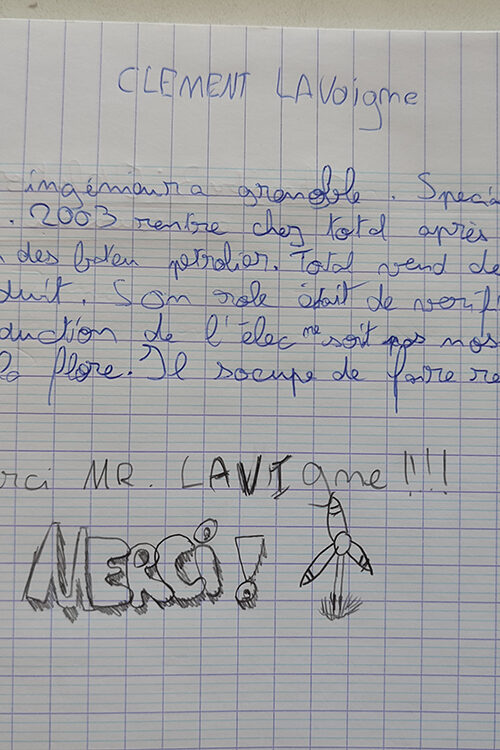 CLEMENT LAVoigne
ingénieur a grenoble . Specia
. 2003 rentre chez total après
des bateu petrolier. Total vend de
duit. Son role était de verif
duction de l'élec ne soit pas nos
flore. Il socupe de faire re
rci MR. LAVIgne !!!!
MERCi !